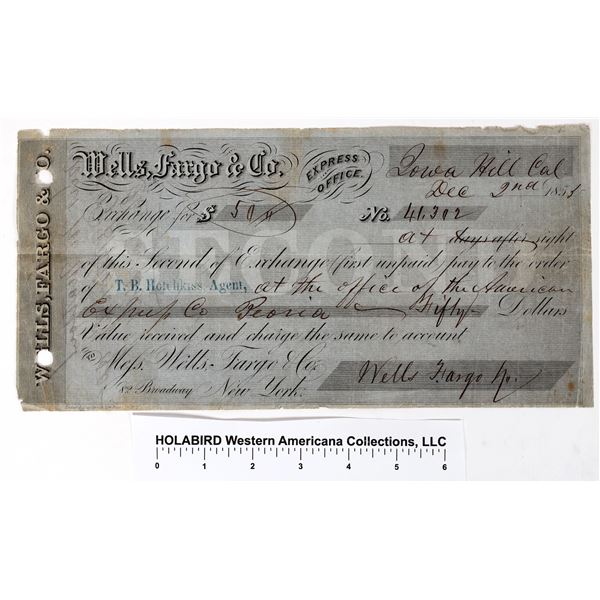 WELLS, FARGO & CO.
Wells, Fargo & Co. EXPRESS OFFICE.
Iowa Hill Cal
Dec 2nd 185
Exchange for $ 50 No. 41,302
SECOND
at days after sight
of this Second of Exchange (first unpaid) pay to the order
of T. B. Hotchkiss Agent, at the office of the American
Express Co Peoria Fifty Dollars
Value received and charge the same to account
To Mess. Wells, Fargo & Co.
82 Broadway New York.
Wells Fargo & Co.
HOLABIRD Western Americana Collections, LLC
0 1 2 3 4 5 6